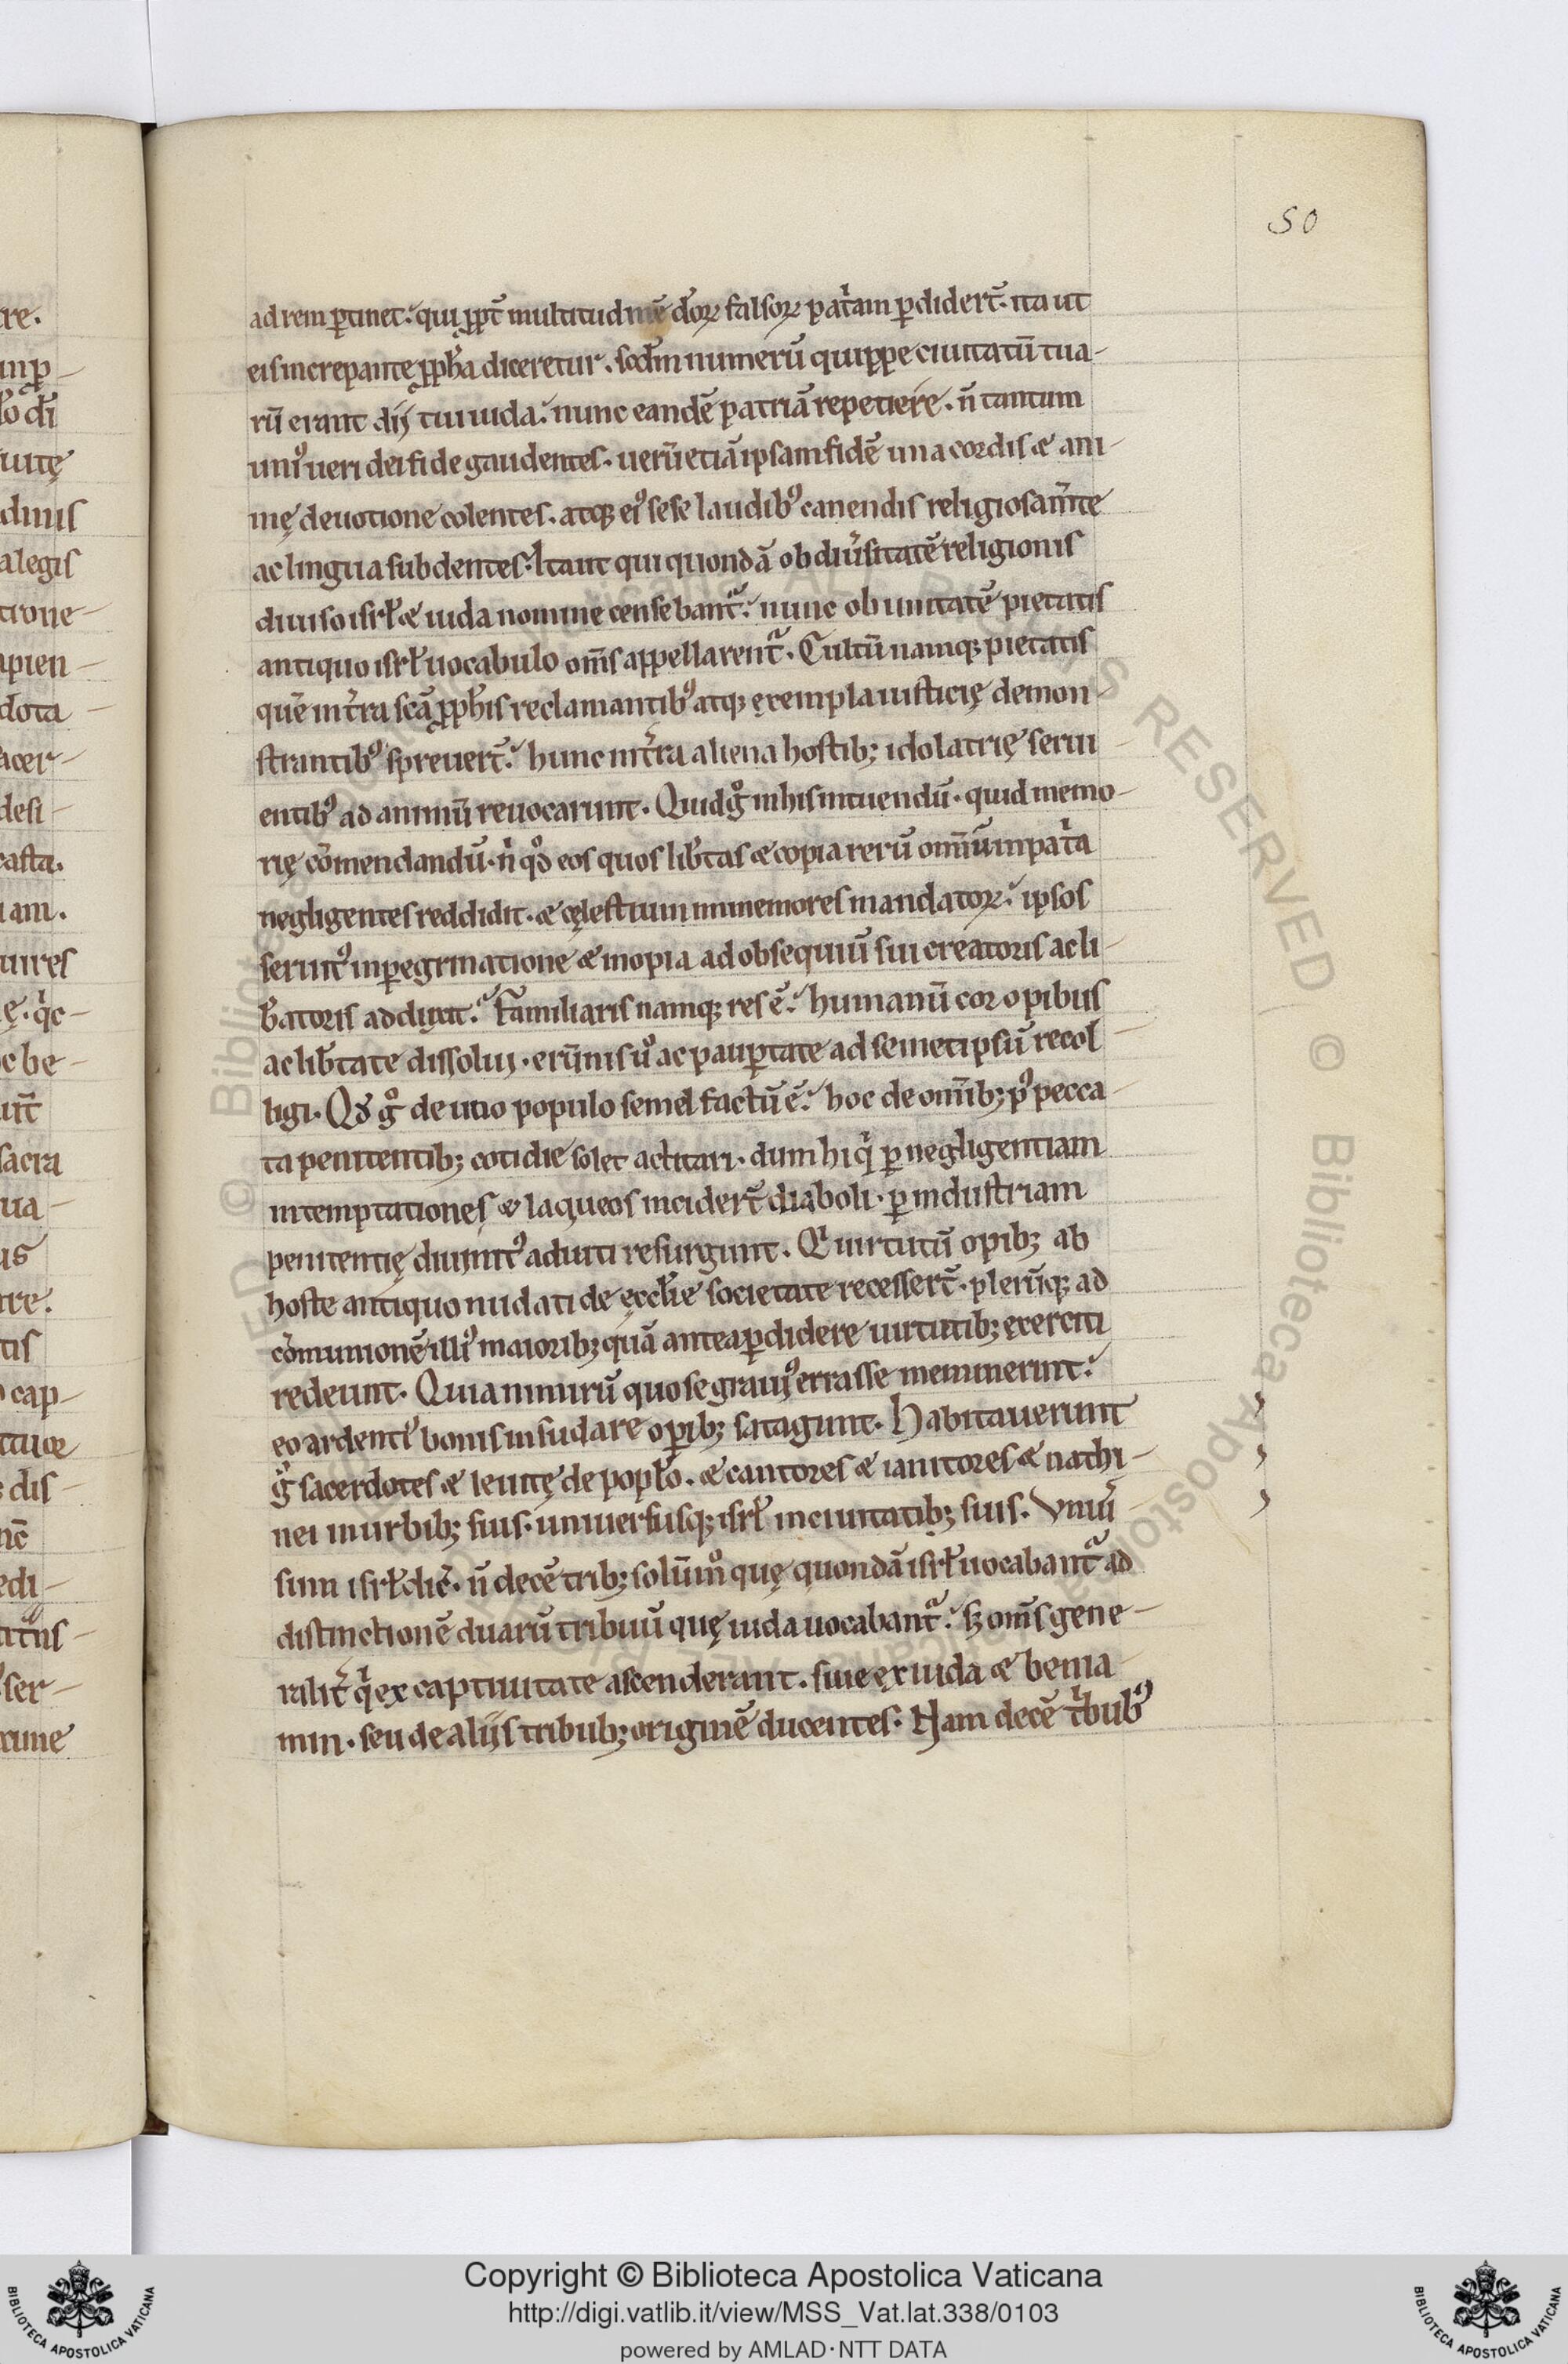 50
ad rem ꝑtinet. qui ꝓpt̄ multitudinē dōꝝ falsoꝝ pat̍am ꝑdidert̄. ita ut
eis increpante ꝓph̄a diceretur. scd̄m numerū quippe ciuitatū tua-
rū erant dij tui iuda. nunc eandē patriā repetiere. n̄ tantum
uniꝰ ueri dei fide gaudentes. uerū etiā ipsam fidē una cordis & ani-
mę deuotione colentes. atq; eiꝰ sese laudibꝰ canendis religiosa m̄te
ac lingua subdentes. Ita ut qui quondā ob diu͛sitatē religionis
diuiso isrł & iuda nomine censebant᷑. nunc ob unitatē pietatis
antiquo isrł uocabulo om̄s appellarent᷑. Cultū namq; pietatis
quē in t̄ra sc̄a ꝓph̄is reclamantibꝰ atq; exempla iusticię demon-
strantibꝰ spreuert̄. hunc in t̄ra aliena hostib; idolatrię serui-
entibꝰ ad animū reuocarunt. Quid gͦ in his intuendū. quid memo-
rię cōmendandū. n̍ qͦd eos quos lib̄tas & copia rerū omniū in pat̍a
negligentes reddidit. & cęlestium immemores mandatoꝝ. ipsos
seruitꝰ in peregrinatione & inopia ad obsequiū sui creatoris ac li-
b̄atoris adduxit. Familiaris namq; res ē. humanū cor opibus
ac lib̄tate dissolui. erūnis ůo ac pauꝑtate ad semetipsū recol-
ligi. Qd gͦ de uno populo semel factū ē. hoc de omīb; pꝰ pecca-
ta penitentib; cotidie solet actitari. dum hi q̍ ꝑ negligentiam
in temptationes & laqueos inciderт̄ diaboli. ꝑ industriam
penitentię diuinitꝰ adiuti resurgunt. Q̍ uirtutū opib; ab
hoste antiquo nudati de ęccłie societate recessert̄. plerūq; ad
cōmunionē illiꝰ maiorib; quā antea ꝑdidere uirtutib; exerciti
redeunt. Quia nimirū quo se grauiꝰ errasse meminerint.
eo ardentiꝰ bonis insudare oꝑib; satagunt. Habitauerunt
gͦ sacerdotes & leuitę de popło. & cantores & ianitores & nathi-
nei in urbib; suis. uniuersusq; isrł in ciuitatib; suis. Vniu͛-
sum isrł dic̄. n̄ decē trib; solūmͦ quę quondā isrł uocabant᷑ ad
distinctionē duarū tribuū quę iuda uocabant᷑. sꝫ om̄s gene-
ralit̄ q̍ ex captiuitate ascenderant. siue ex iuda & benia-
min. seu de alijs tribub; originē ducentes. Nam decē t̍bubꝰ
Copyright © Biblioteca Apostolica Vaticana
http://digi.vatlib.it/view/MSS_Vat.lat.338/0103
powered by AMLAD·NTT DATA